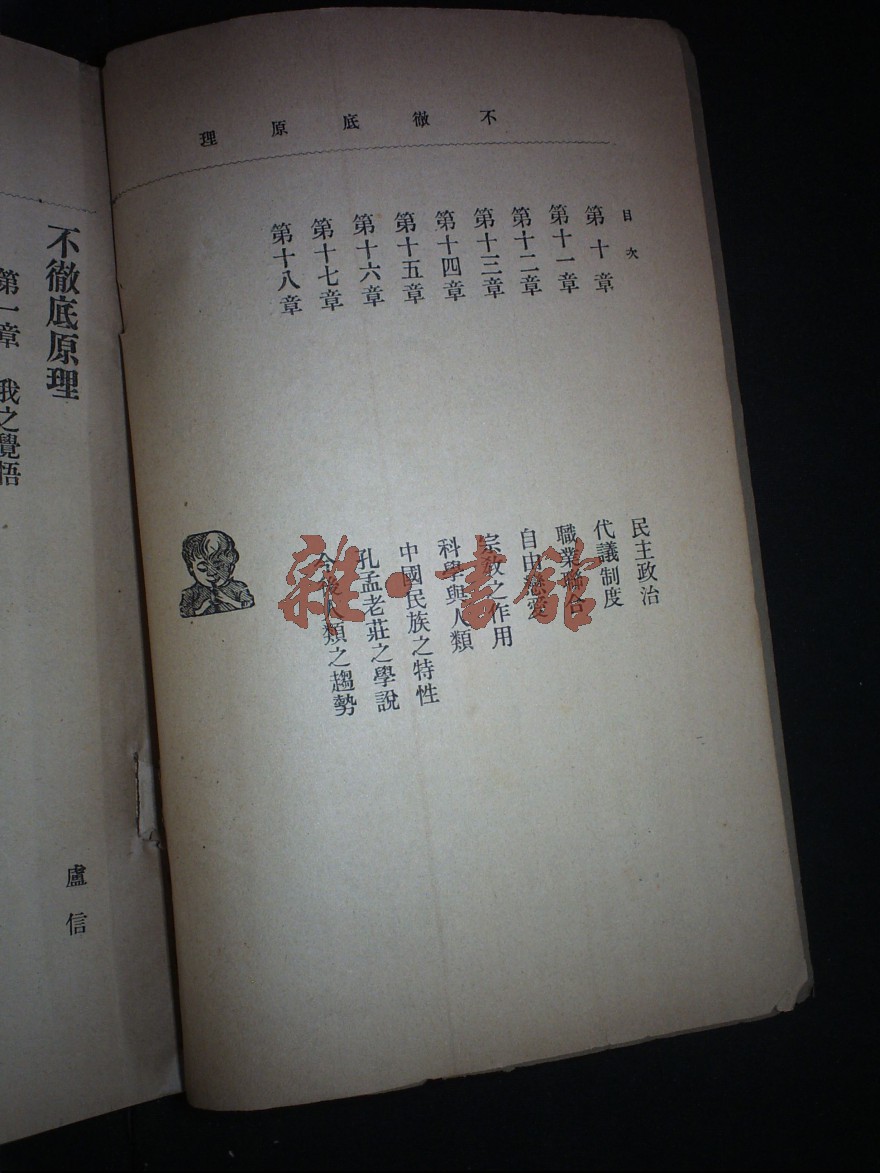 不徹底原理
目次
第十章 民主政治
第十一章 代議制度
第十二章 職業聯合
第十三章 自由戀愛
第十四章 宗教之作用
第十五章 科學與人類
第十六章 中國民族之特性
第十七章 孔孟老莊之學說
第十八章 今後人類之趨勢
雜·書館
不徹底原理
盧信
第一章 我之覺悟